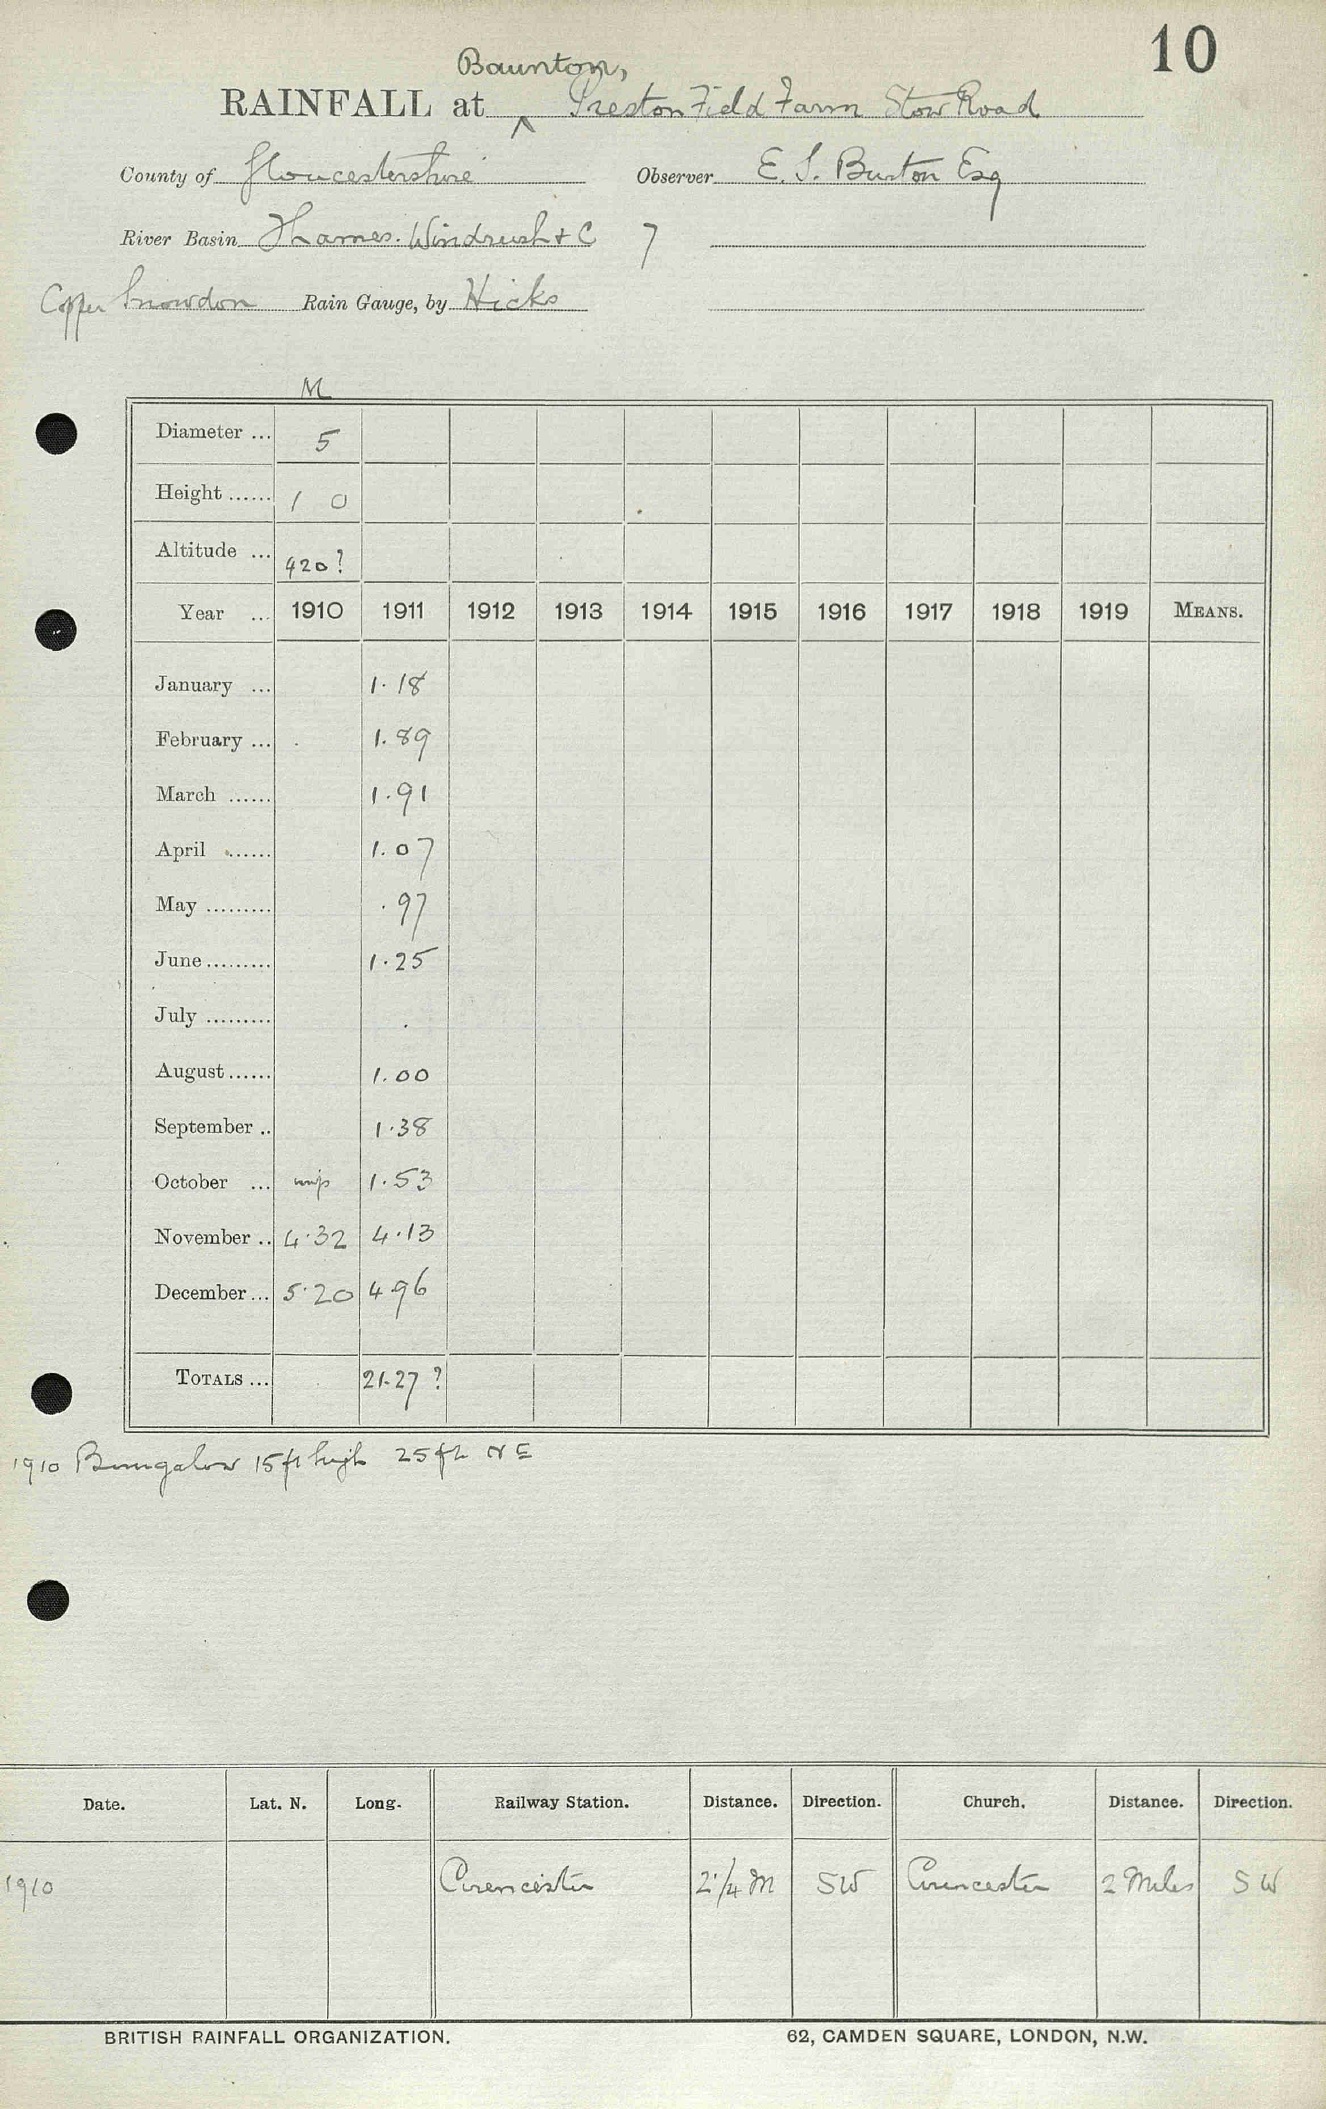 10
Baunton,
RAINFALL at ^ Preston Field Farm Stow Road
County of Gloucestershire Observer E. S. Burton Esq
River Basin Thames. Windrush & C 7
Copper Snowdon Rain Gauge, by Hicks
M
Diameter ... 5
Height ...... 1 0
Altitude ... 420?
Year ... 1910 1911 1912 1913 1914 1915 1916 1917 1918 1919 MEANS.
January ... 1.18
February ... 1.89
March ...... 1.91
April ...... 1.07
May ......... .97
June ......... 1.25
July ......... .
August ...... 1.00
September .. 1.38
October ... 1.53
November .. 4.32 4.13
December ... 5.20 4 96
TOTALS ... 21.27 ?
1910 Bungalow 15ft high 25ft NE
Date. Lat. N. Long. Railway Station. Distance. Direction. Church. Distance. Direction.
1910 Cirencester 2 1/4 M SW Cirencester 2 Miles SW
BRITISH RAINFALL ORGANIZATION. 62, CAMDEN SQUARE, LONDON, N.W.